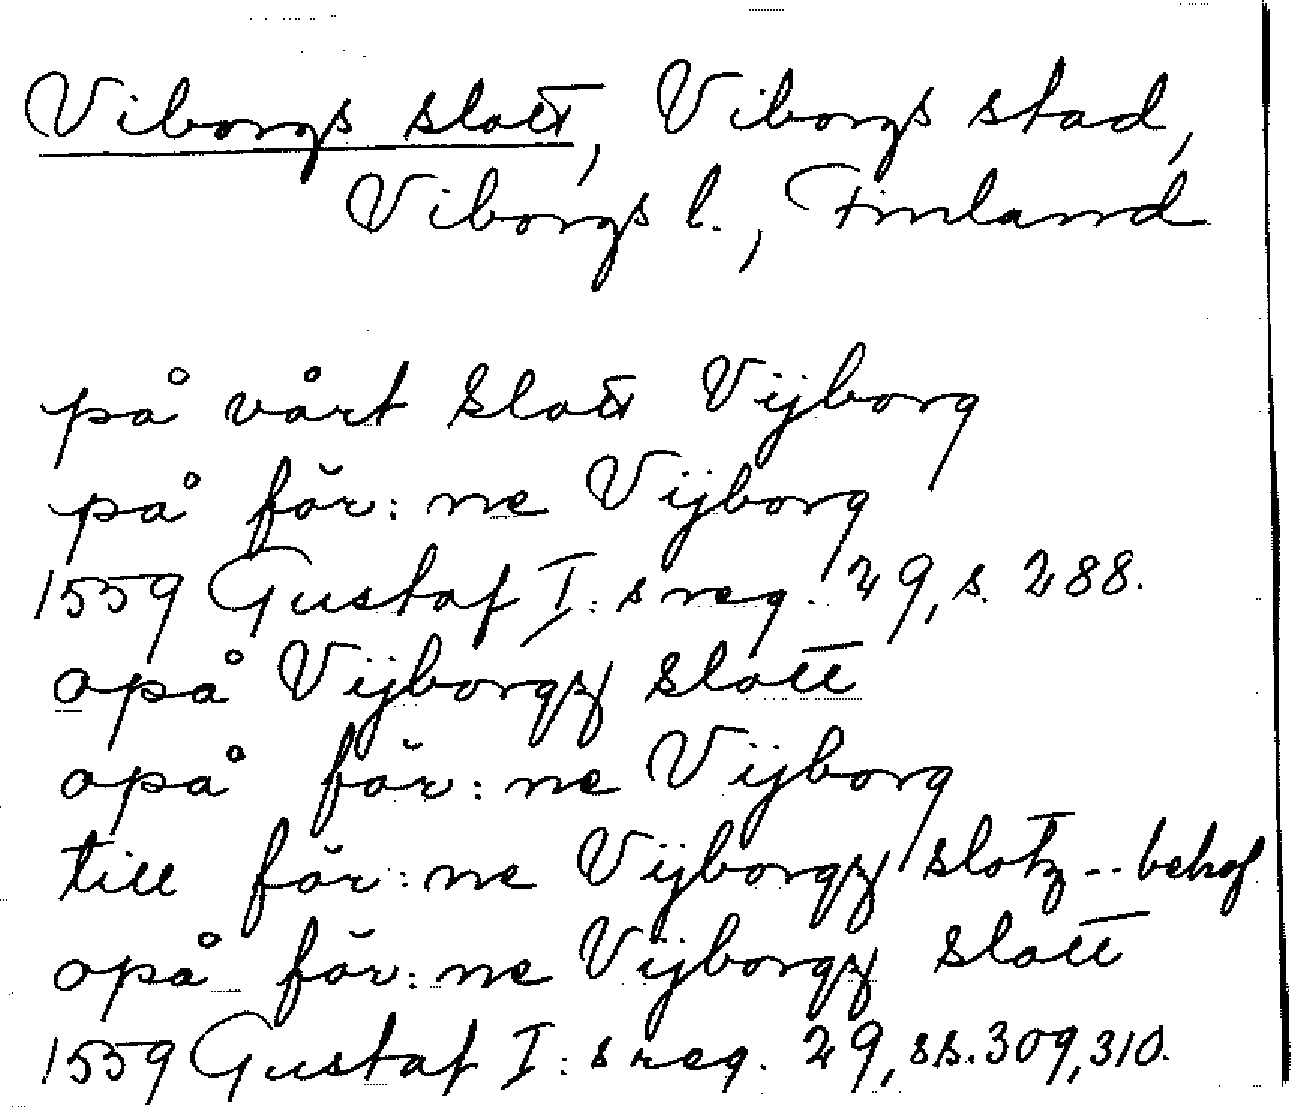 Viborgs slott, Viborgs stad,
Viborgs l., Finland
på vårt Slott Vijborg
på för:ne Vijborg
1559 Gustaf I:s reg. 29, s. 288.
opå Vijborgzs Slott
opå för:ne Vijborg
till för:ne Vijborgzs slotz -- behof
opå för:ne Vijborgzs Slott
1559 Gustaf I:s reg. 29, ss. 309, 310.